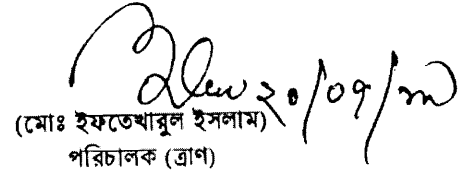 ২০/০৭/
(মোঃ ইফতেখারুল ইসলাম)
পরিচালক (ত্রাণ)